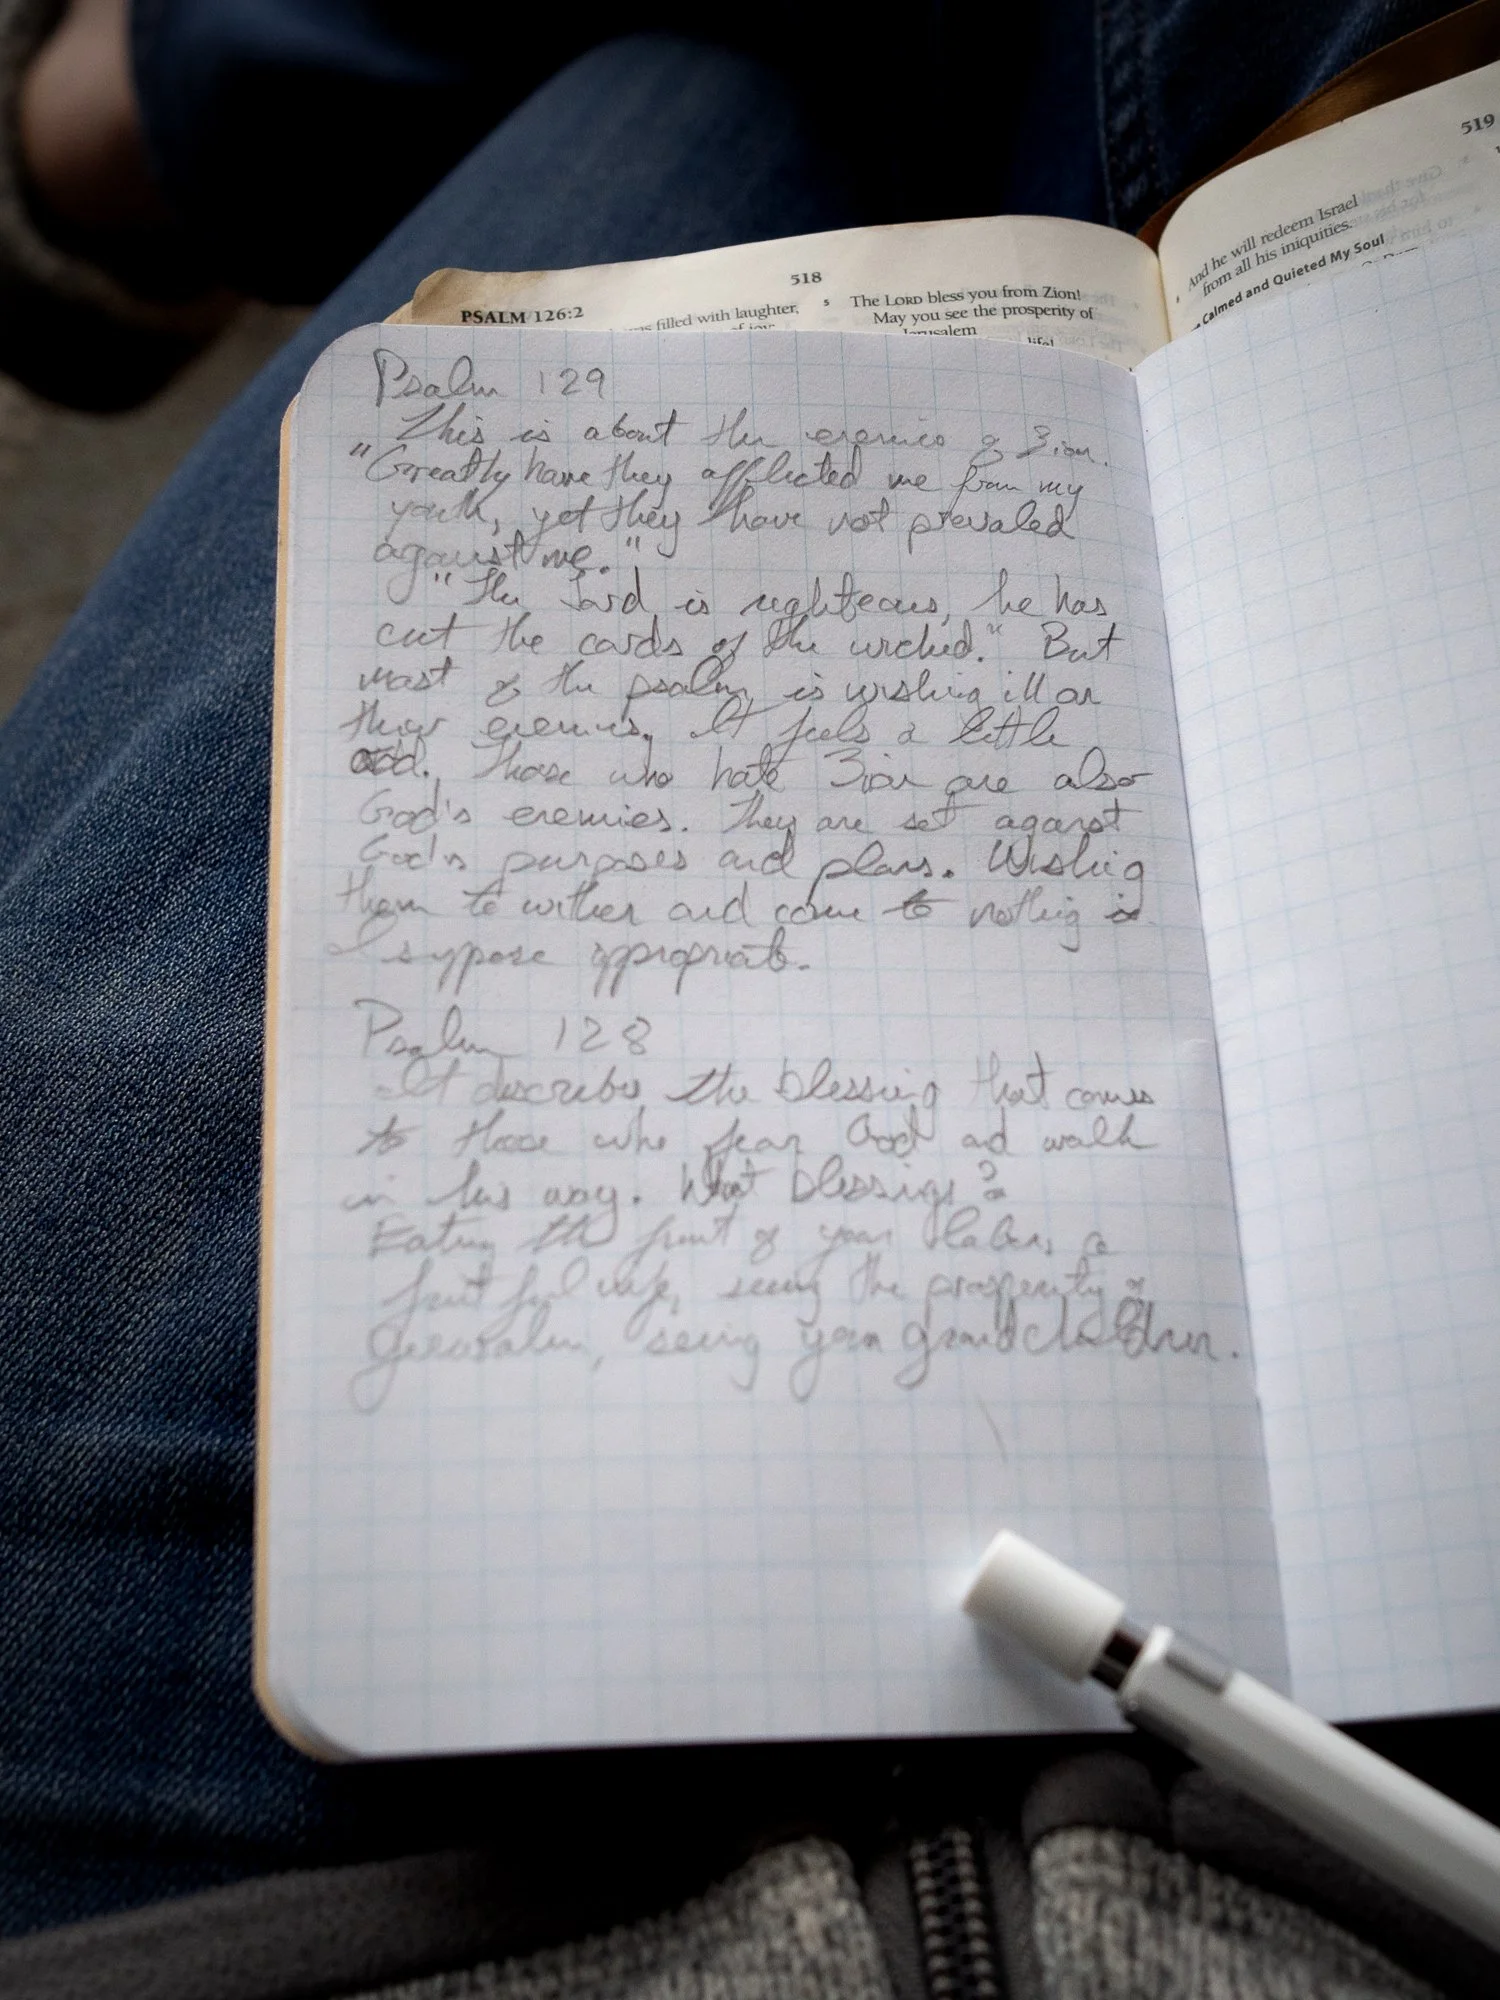 518
PSALM 126:2
filled with laughter,
of joy;
5 The LORD bless you from Zion!
May you see the prosperity of
Jerusalem
life!
519
And he will redeem Israel
from all his iniquities.
Calmed and Quieted My Soul
Psalm 129
This is about the enemies of Zion.
"Greatly have they afflicted me from my
youth, yet they have not prevaled
against me."
"The Lord is righteous, he has
cut the cords of the wicked." But
most of the psalm is wishing ill on
their enemies. It feels a little
odd. Those who hate Zion are also
God's enemies. They are set against
God's purposes and plans. Wishing
them to wither and come to nothing is
I suppose appropriate.
Psalm 128
It describes the blessing that comes
to those who fear God and walk
in his way. What blessings?
Eating the fruit of your labor, a
fruitful wife, seeing the prosperity of
Jerusalem, seeing your grandchildren.